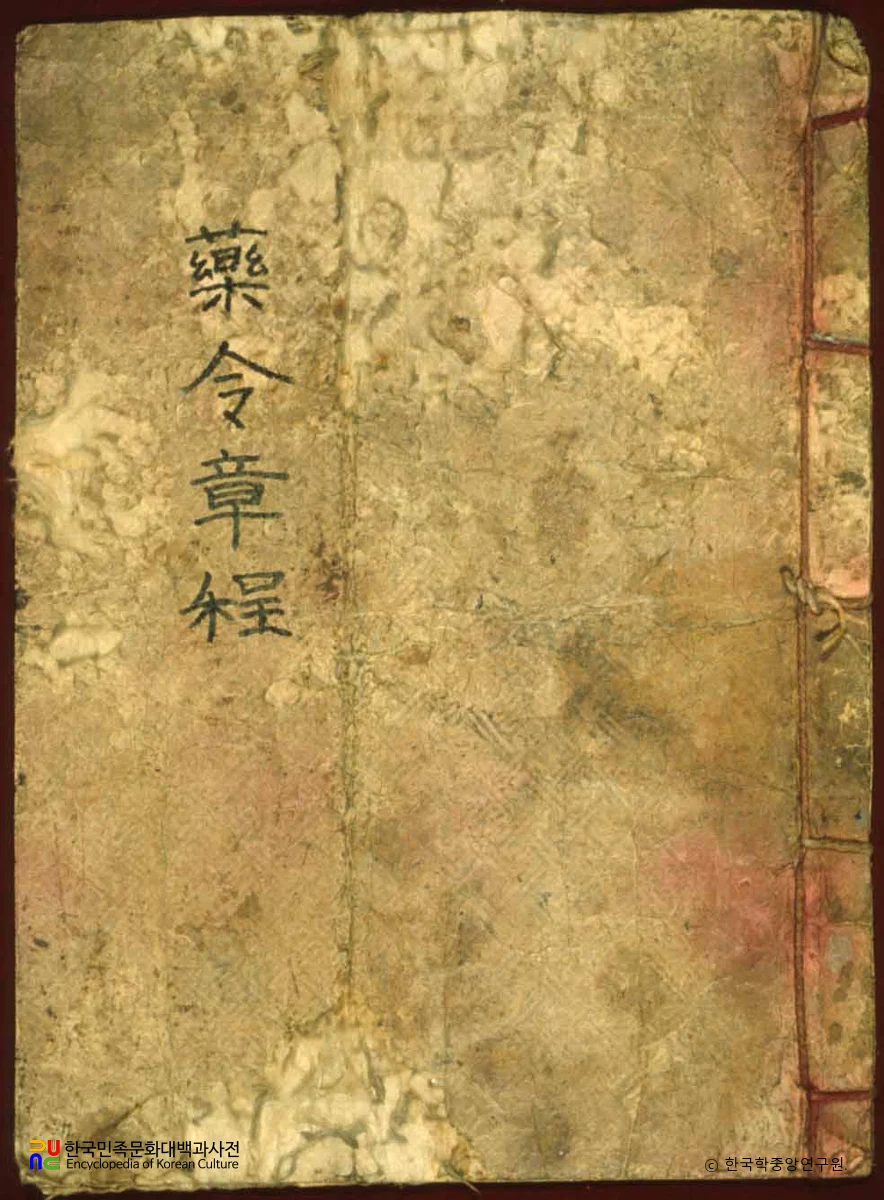 藥令章程
한국민족문화대백과사전
Encyclopedia of Korean Culture
© 한국학중앙연구원